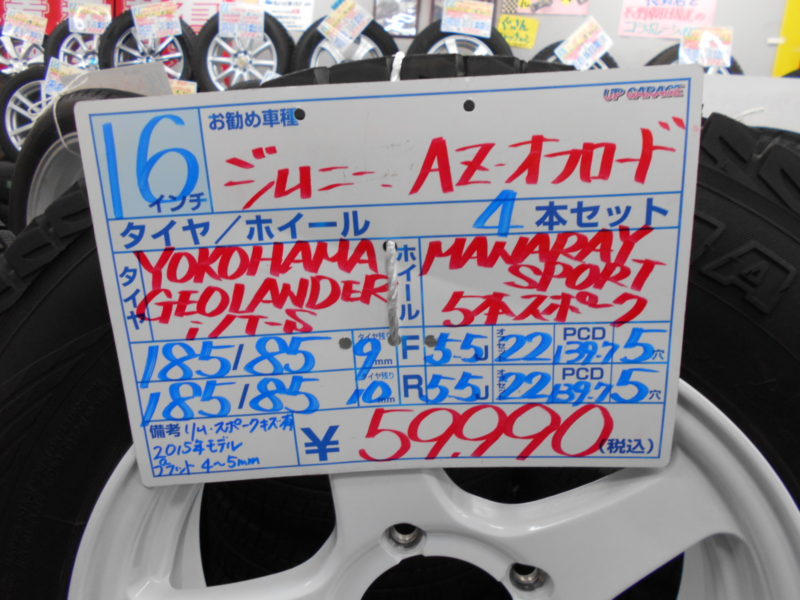 UP GARAGE
16 インチ
お勧め車種
ジムニー・AZ-オフロード
タイヤ／ホイール 4 本セット
タイヤ
YOKOHAMA
GEOLANDER
i/T-S
ホイール
MANARAY
SPORT
5本スポーク
185/85 タイヤ残り 9mm F 5.5J オフセット 22 PCD 139.7 5穴
185/85 タイヤ残り 10mm R 5.5J オフセット 22 PCD 139.7 5穴
備考 リム・スポークキズ有
2015年モデル
プラット 4～5mm
¥ 59,990 (税込)